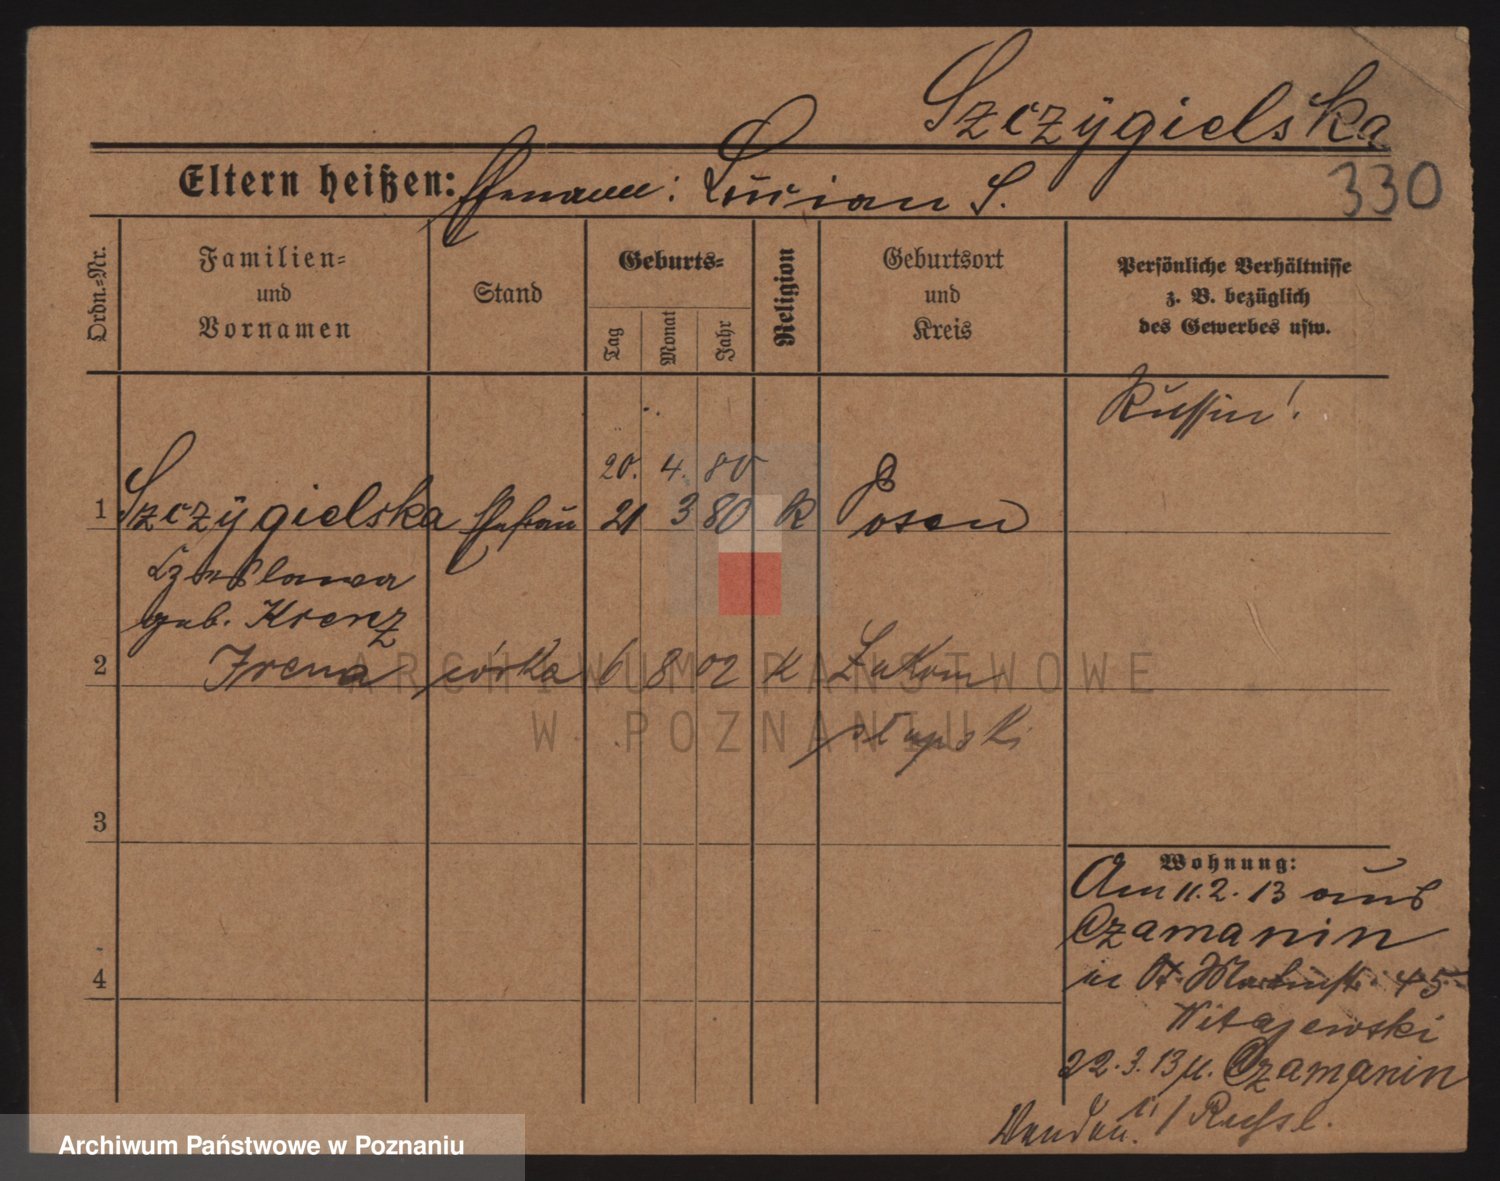 Szczygielska
Eltern heißen: Ehemann: Lucian S.
330
Ordn.-Nr.
Familien-
und
Vornamen
Stand
Geburts-
Tag
Monat
Jahr
Religion
Geburtsort
und
Kreis
Persönliche Verhältnisse
z. B. bezüglich
des Gewerbes usw.
Russin!
20. 4. 80
1 Szczygielska Ehefrau 21 3 80 K Posen
Czeslawa
geb. Krenz
2 Irena córka 6 8 02 K
słupski
3
4
Wohnung:
Am 11.2.13 aus
Czamanin
in St. Martinstr. 45
Witajewski
22.3.13 n. Czamanin
/ Russl.
ARCHIWUM PAŃSTWOWE
W POZNANIU
Archiwum Państwowe w Poznaniu